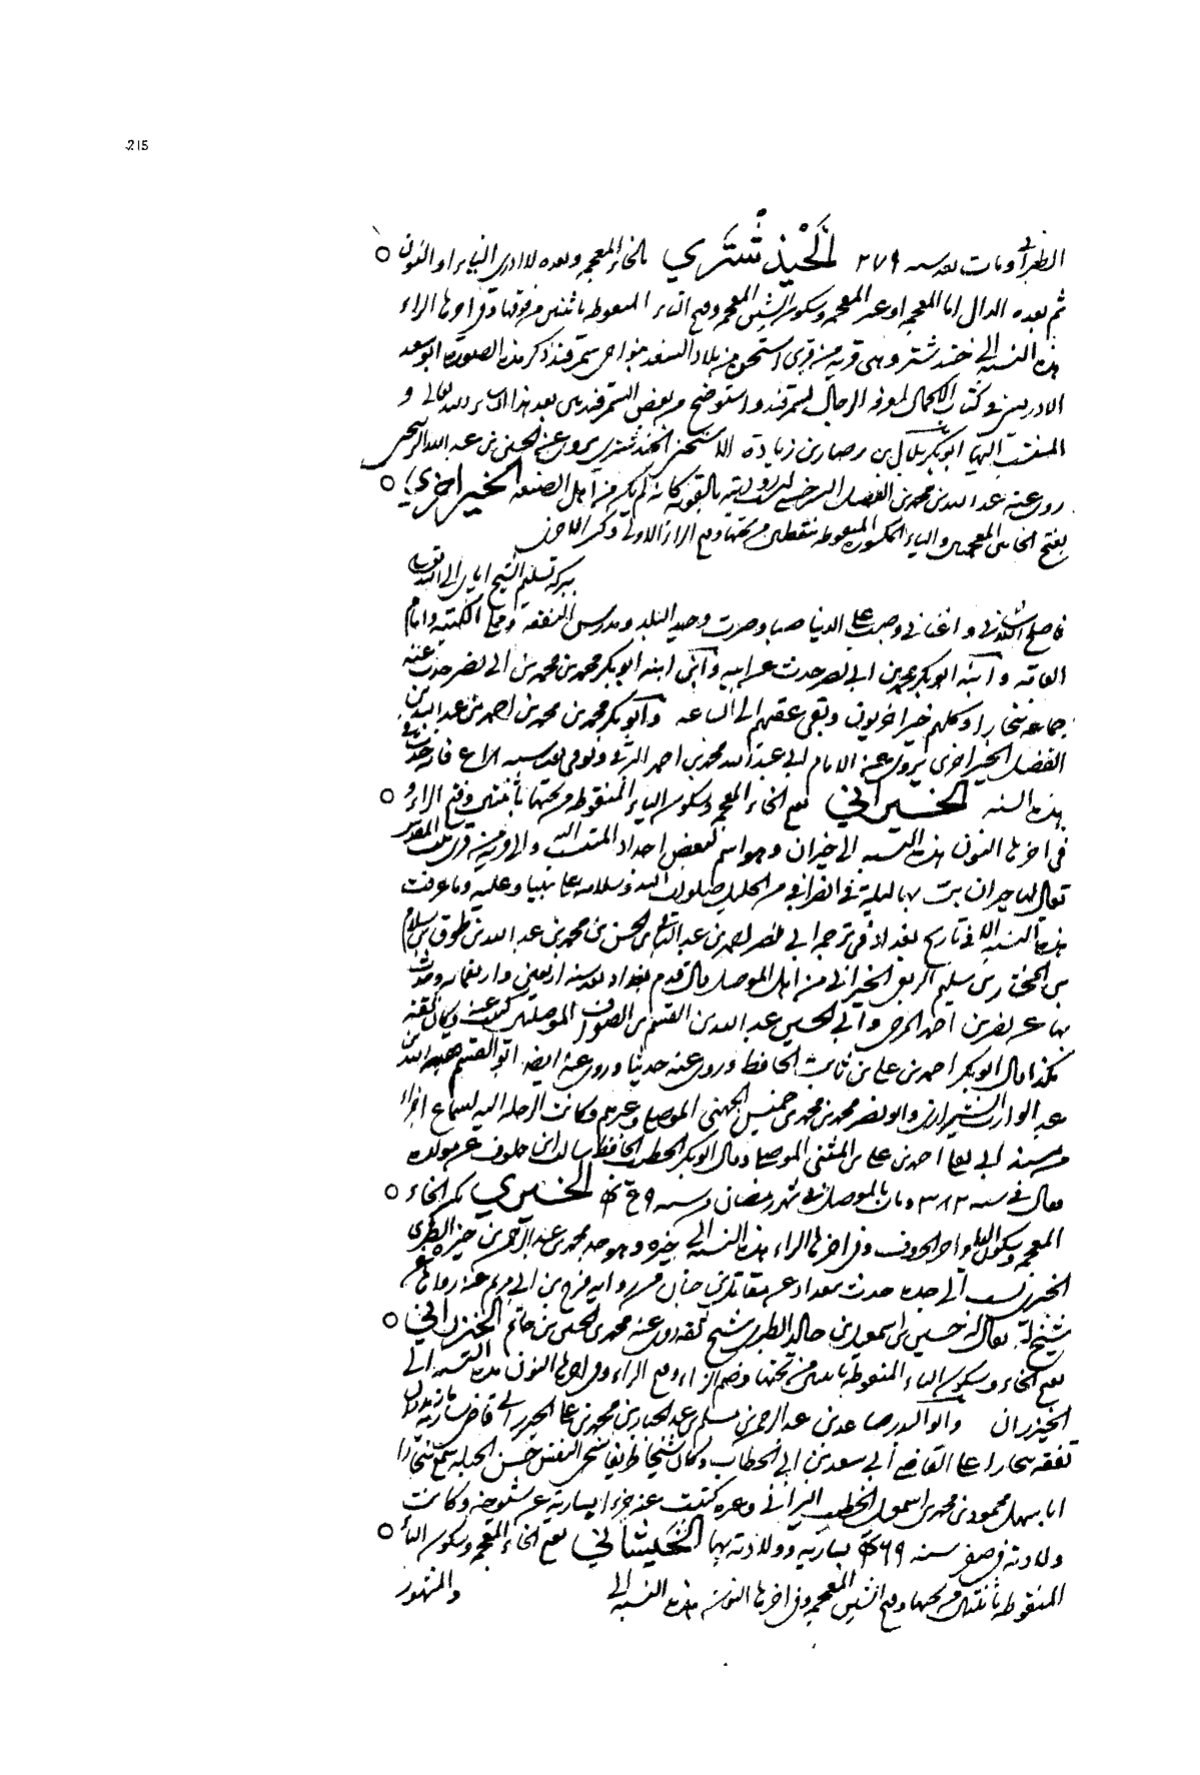 215
الطبراني ومات بعد سنة ٢٧٩ الخيذشتري بالخاء المعجمة وبعده لا ادري الياء او النون
ثم بعده الدال اما المعجمة او غير المعجمة وسكون الشين المعجمة وفتح التاء المنقوطة باثنتين من فوقها وفي اخرها الراء
هذه النسبة الى خيذشتر وهي قرية من قرى اشتيخن من بلاد السغد بنواحي سمرقند ذكر هذه الصورة ابو سعد
الادريسي في كتاب الاكمال لمعرفة الرجال بسمرقند واستوضح من بعض السمرقنديين بعد هذا ان شاء الله تعالى و
المنتسب اليها ابو بكر بلال بن رصار بن زيادة الاشتيخني الخيذشتري يروي عن الحسن بن عبد الله السرخسي
روى عنه عبد الله بن محمد بن الفضل السرخسي ليس روايته بالقوية كانه لم يكن من اهل الصنعة الخيراخري
بفتح الخاءين المعجمتين والياء المكسورة المنقوطة بنقطتين من تحتها وفتح الراء الاولى وكسر الاخرى
ببركة تسليم الشيخ اياي الى الله تعالى
العامة وابنه ابو بكر محمد بن ابي نصر حدث عن ابيه وابن ابنه ابو بكر محمد بن محمد بن ابي نصر حدث عنه
جماعة ببخارا وكلهم خيراخريون وبقي عقبهم الى الساعة وابو بكر محمد بن محمد بن احمد بن عبد الله بن
الفضل الخيراخري يروي عن الامام ابي عبد الله محمد بن احمد البرقي وتوفي بعد سنة
بهذه السنة الخيراني بفتح الخاء المعجمة وسكون الياء المنقوطة من تحتها باثنتين وفتح الراء و
في اخرها النون هذه النسبة الى خيران وهو اسم لبعض اجداد المنتسب والى قرية من قرى بيت المقدس
يقال لها خيران بت بها ليلة في انصرافي من الخليل صلوات الله وسلامه على نبينا وعليه وما عرفت
هذه النسبة الا في تاريخ بغداد في ترجمة ابي نصر احمد بن عبد الباقي بن الحسن بن محمد بن عبد الله بن طوق بن سلام
بن المختار بن سليم الربعي الخيراني من اهل الموصل قال قدم بغداد في سنة اربعين واربعمائة وحدث
بها عن نصر بن احمد المرجي وابي الحسين عبد الله بن القسم بن الصواف الموصليين كتبت عنه وكان ثقة
هكذا قال ابو بكر احمد بن علي بن ثابت الحافظ وروى عنه حديثا وروى عنه ايضا ابو القسم هبة الله بن
عبد الوارث الشيرازي وابو نصر محمد بن محمد بن خميس الجهني الموصلي وغيرهم وكانت الرحلة اليه لسماع اجزاء
من مسند ابي يعلى احمد بن علي بن المثنى الموصلي وقال ابو بكر الخطيب الحافظ سالت ابن طوق عن مولده
فقال في سنة ٣٨٢ ومات بالموصل في شهر رمضان من سنة الخيري بكسر الخاء
المعجمة وسكون الياء اخر الحروف وفي اخرها الراء هذه النسبة الى خيرة وهو جد محمد بن عبد الرحمن بن خيرة الطبري
الخيري نسب الى جده حدث ببغداد عن مقاتل بن حيان من رواية فرج بن ابي مريم عنه رواها عن
شيخ له يقال له حسين بن اسمعيل بن خالد الطبري شيخ ثقة روى عنه محمد بن الحسن بن حاتم الخيزراني
بفتح الخاء وسكون الياء المنقوطة باثنتين من تحتها وضم الزاء وفتح الراء وفي اخرها النون هذه النسبة الى
الخيزران وابو البدر صاعد بن عبد الرحمن بن مسلم بن عبد الجبار بن محمد بن علي الخيزراني قاضي سارية مازندران
تفقه ببخارا على القاضي ابي سعد بن ابي الخطاب وكان شيخا ظريفا سخي النفس حسن الجملة سمع ببخارا
ابا سهل محمود بن محمد بن اسمعيل الخطيب البراني وغيره كتبت عنه جزءا بسارية عن شيوخه وكانت
ولادته في صفر سنة بسارية وولادته بها الخيشاني بفتح الخاء المعجمة وسكون الياء
المنقوطة باثنتين من تحتها وفتح الشين المعجمة وفي اخرها النون هذه النسبة الى والمشهور